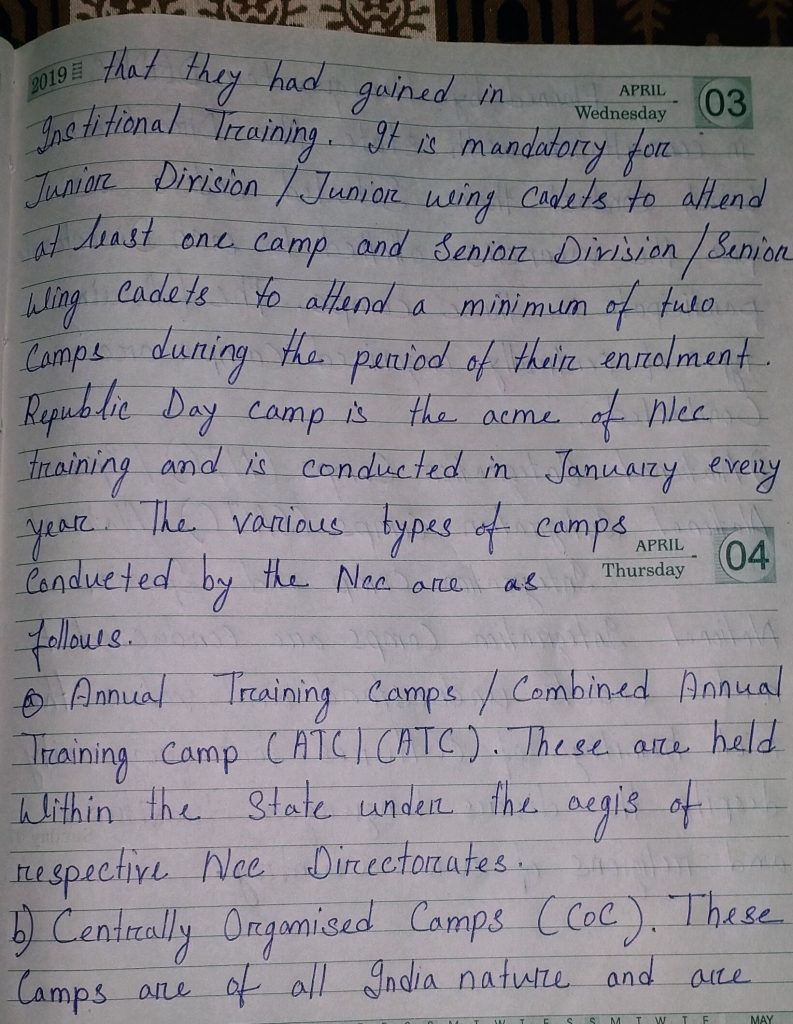 2019 that they had gained in APRIL Wednesday 03
Institional Training. It is mandatory for
Junior Division / Junior wing Cadets to attend
at least one camp and Senior Division / Senior
Wing Cadets to attend a minimum of two
Camps during the period of their enrolment.
Republic Day camp is the acme of Ncc
training and is conducted in January every
year. The various types of camps
APRIL Thursday 04
Conducted by the Ncc are as
follows.
a) Annual Training Camps / Combined Annual
Training camp (ATC/CATC). These are held
Within the State under the aegis of
respective Ncc Directorates.
b) Centrally Organised Camps (COC). These
Camps are of all India nature and are
S S M T W T F MAY